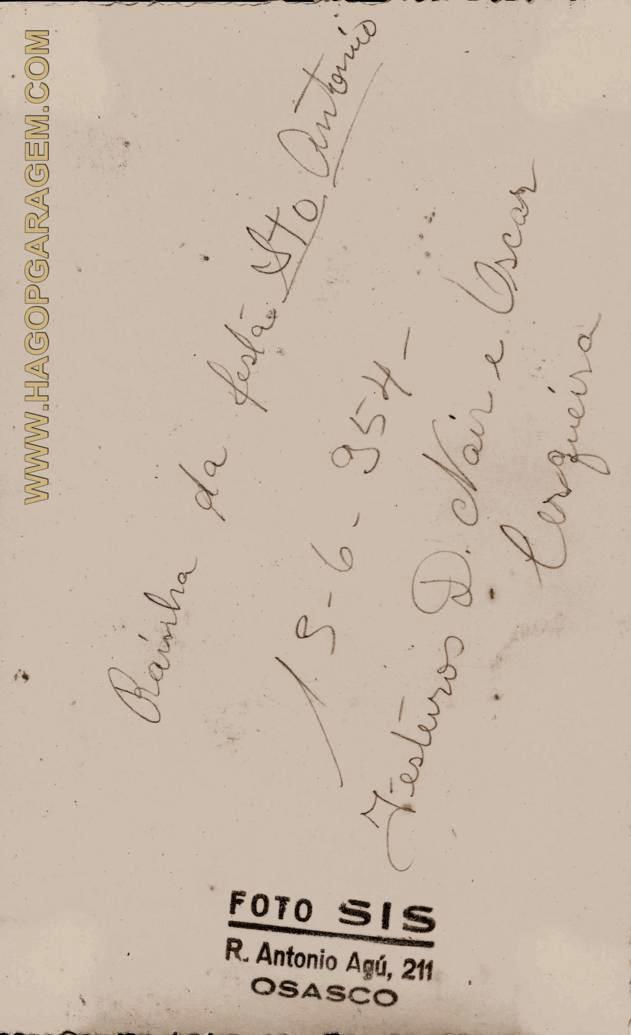 WWW.HAGOPGARAGEM.COM
Rainha da festa Sto Antonio
15-6-954-
Festeiros D. Nair e Oscar
Cerqueira
FOTO SIS
R. Antonio Agú, 211
OSASCO